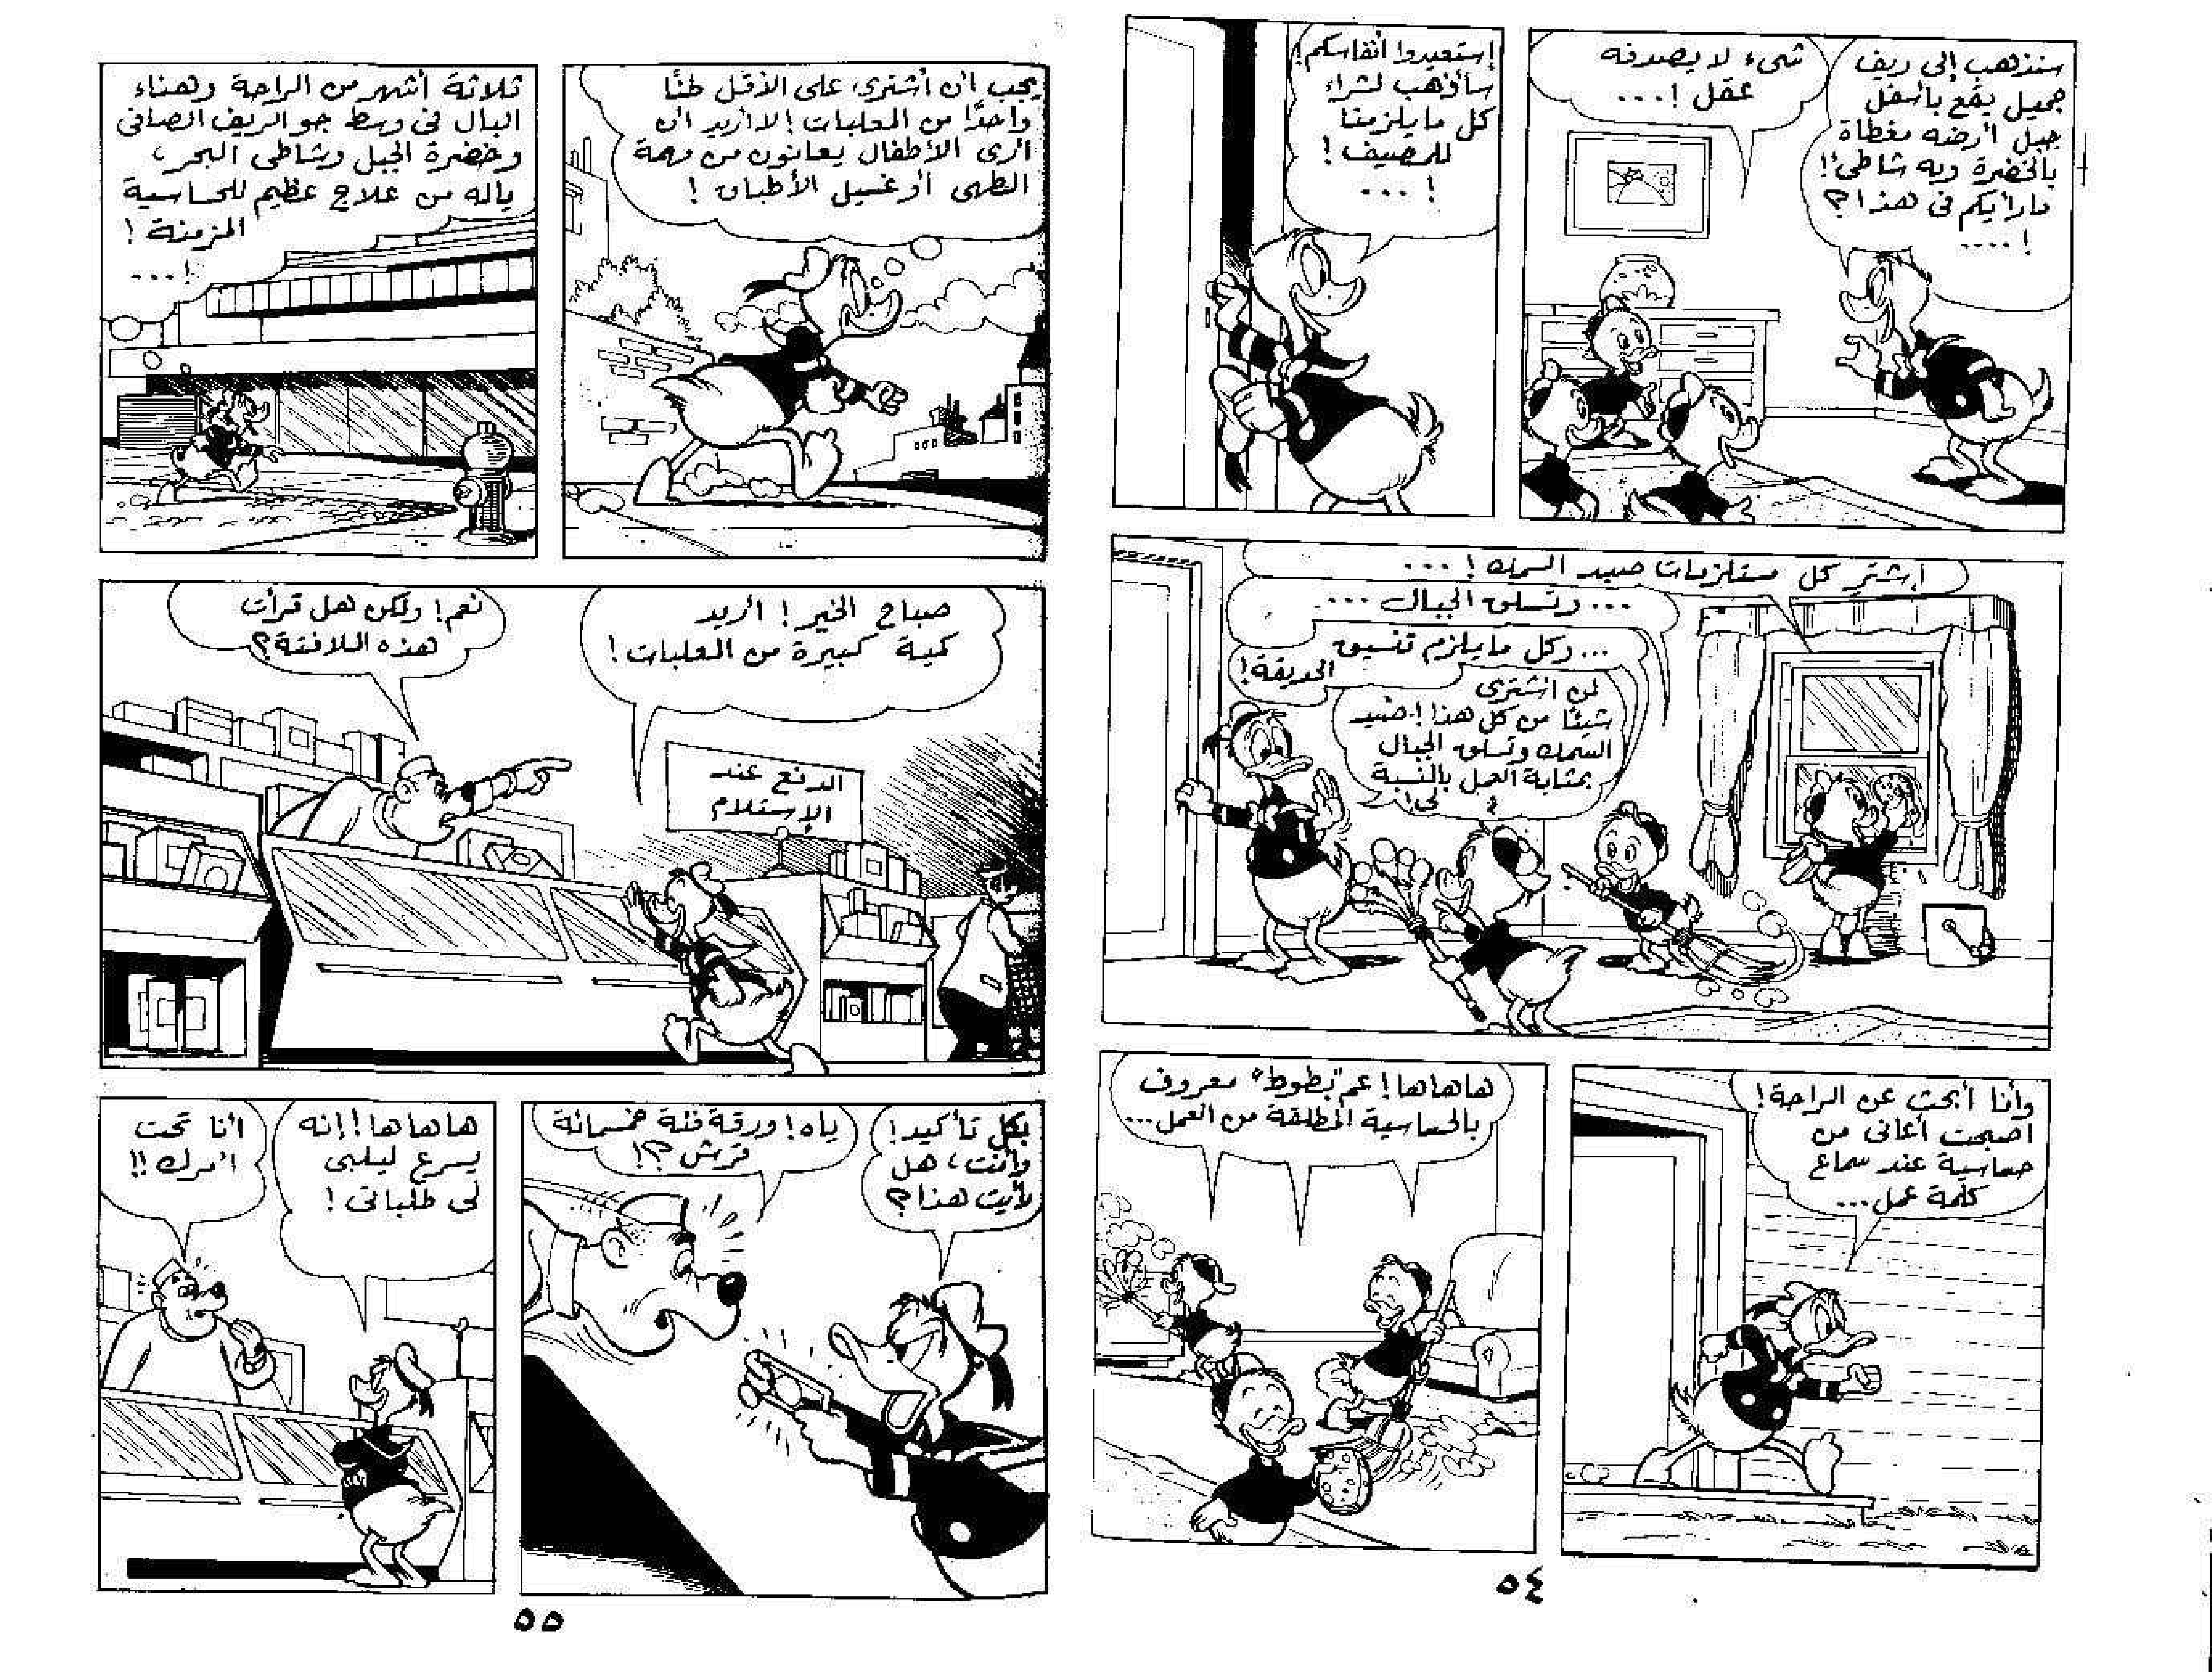 سنذهب إلى ريف
جميل يقع بأسفل
جبل أرضه مغطاة
بالخضرة وبه شاطئ!!
ما رأيكم فى هذا؟
!....
شىء لا يصدقه
عقل !...
إستعيدوا أنفاسكم!
سأذهب لشراء
كل ما يلزمنا
للمصيف !
! ...
إشترِ كل مستلزمات صيد السمك ! ...
... وتسلق الجبال ...
... وكل ما يلزم تنسيق
الحديقة!
لن أشترى
شيئًا من كل هذا! صيد
السمك وتسلق الجبال
بمثابة العمل بالنسبة
لى!
وأنا أبحث عن الراحة!
أصبحت أعانى من
حساسية عند سماع
كلمة عمل...
هاهاها! عم "بطوط" معروف
بالحساسية المطلقة من العمل...
٥٤
يجب أن أشترى على الأقل طنًا
واحدًا من المعلبات! لا أريد أن
أرى الأطفال يعانون من مهمة
الطهى أو غسيل الأطباق !
ثلاثة أشهر من الراحة وهناء
البال فى وسط جو الريف الصافى
وخضرة الجبل وشاطى البحر،
ياله من علاج عظيم للحساسية
المزمنة !
! ...
صباح الخير! أريد
كمية كبيرة من المعلبات !
نعم! ولكن هل قرأت
هذه اللافتة؟
الدفع عند
الإستلام
بكل تأكيد!
وأنت، هل
رأيت هذا؟
ياه! ورقة فئة خمسمائة
قرش ؟!
هاهاها! إنه
يسرع ليلبى
لى طلباتى !
أنا تحت
أمرك !!
٥٥